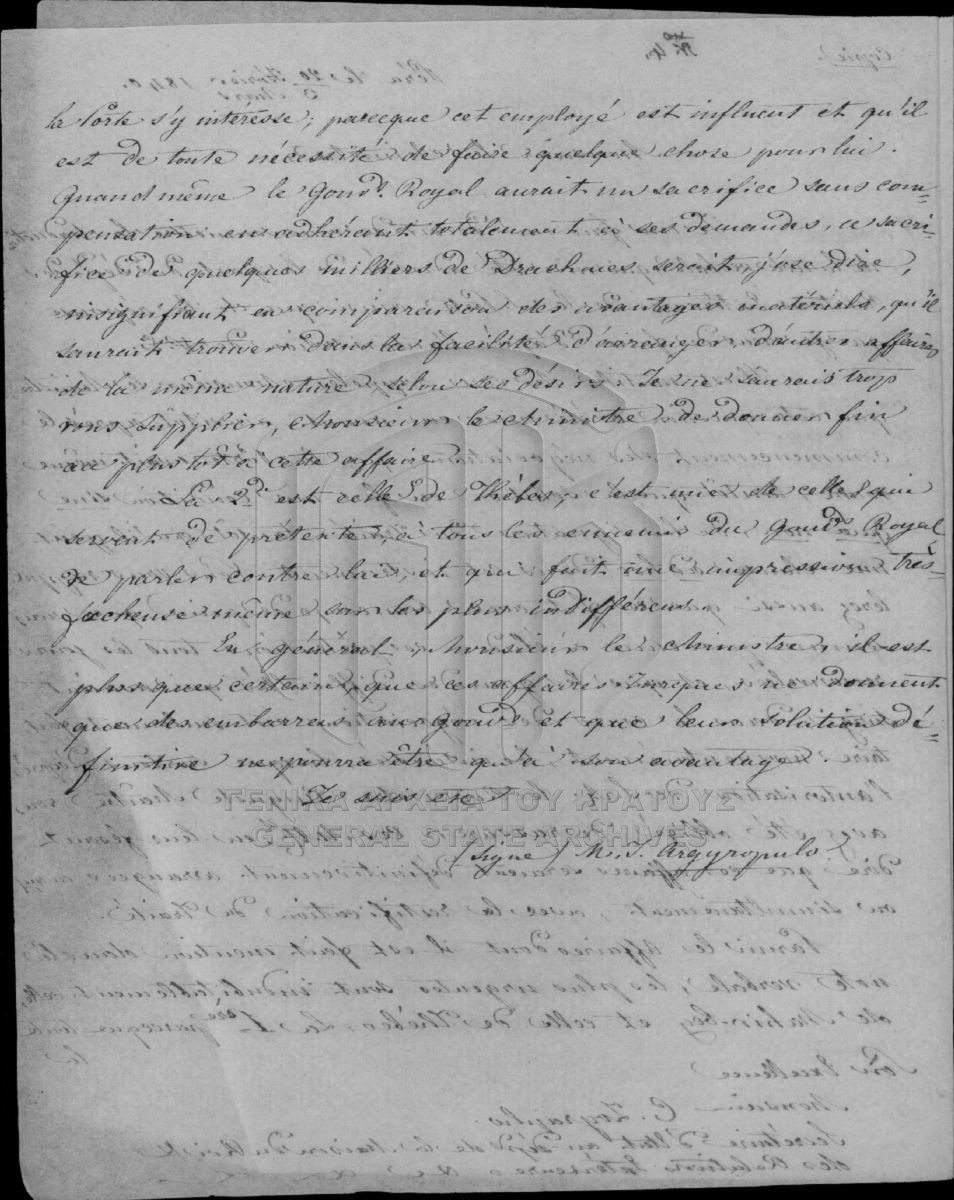 la Porte s'y intéresse; parceque cet employé est influent et qu'il
est de toute nécessité de faire quelque chose pour lui.
Quand même le Gouvt. Royal aurait un sacrifice sans com-
pensation en adhérant totalement à ses demandes, ce sacri-
fice de quelques milliers de Drachmes serait, j'ose dire,
insignifiant en comparaison des avantages matériels, qu'il
saurait trouver dans la facilité d'arranger d'autres affaires
de la même nature selon ses désirs. Je ne saurais trop
vous supplier, Monsieur le Ministre de donner fin
au plustot à cette affaire.
La 2de est celle de Thèbes; c'est une de celles qui
servent de prétexte, à tous les ennemis du Gouvt. Royal
de parler contre lui, et qui fait une impression très-
facheuse même sur les plus indifférens.
En général, Monsieur le Ministre, il est
plus que certain, que ces affaires Turques ne donnent
que des embarras au Gouvt. et que leur solution dé-
finitive ne pourra être qu'à son avantage.
Je suis etc
ΓΕΝΙΚΑ ΑΡΧΕΙΑ ΤΟΥ ΚΡΑΤΟΥΣ
GENERAL STATE ARCHIVES
(Signé) M. T. Argyropulo